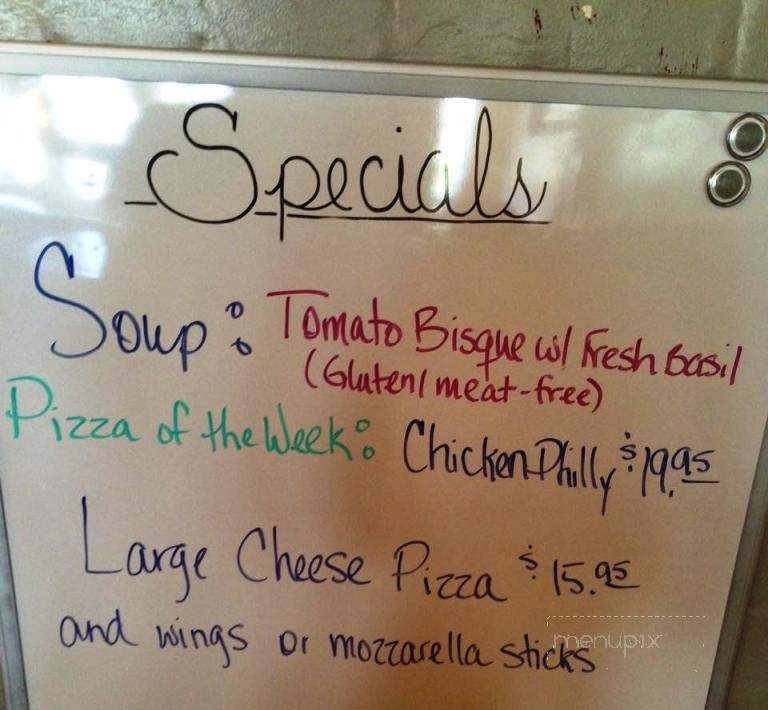 Specials
Soup: Tomato Bisque w/ Fresh Basil
(Gluten/meat-free)
Pizza of the Week: Chicken Philly $19.95
Large Cheese Pizza $15.95
and wings or mozzarella sticks
menupix